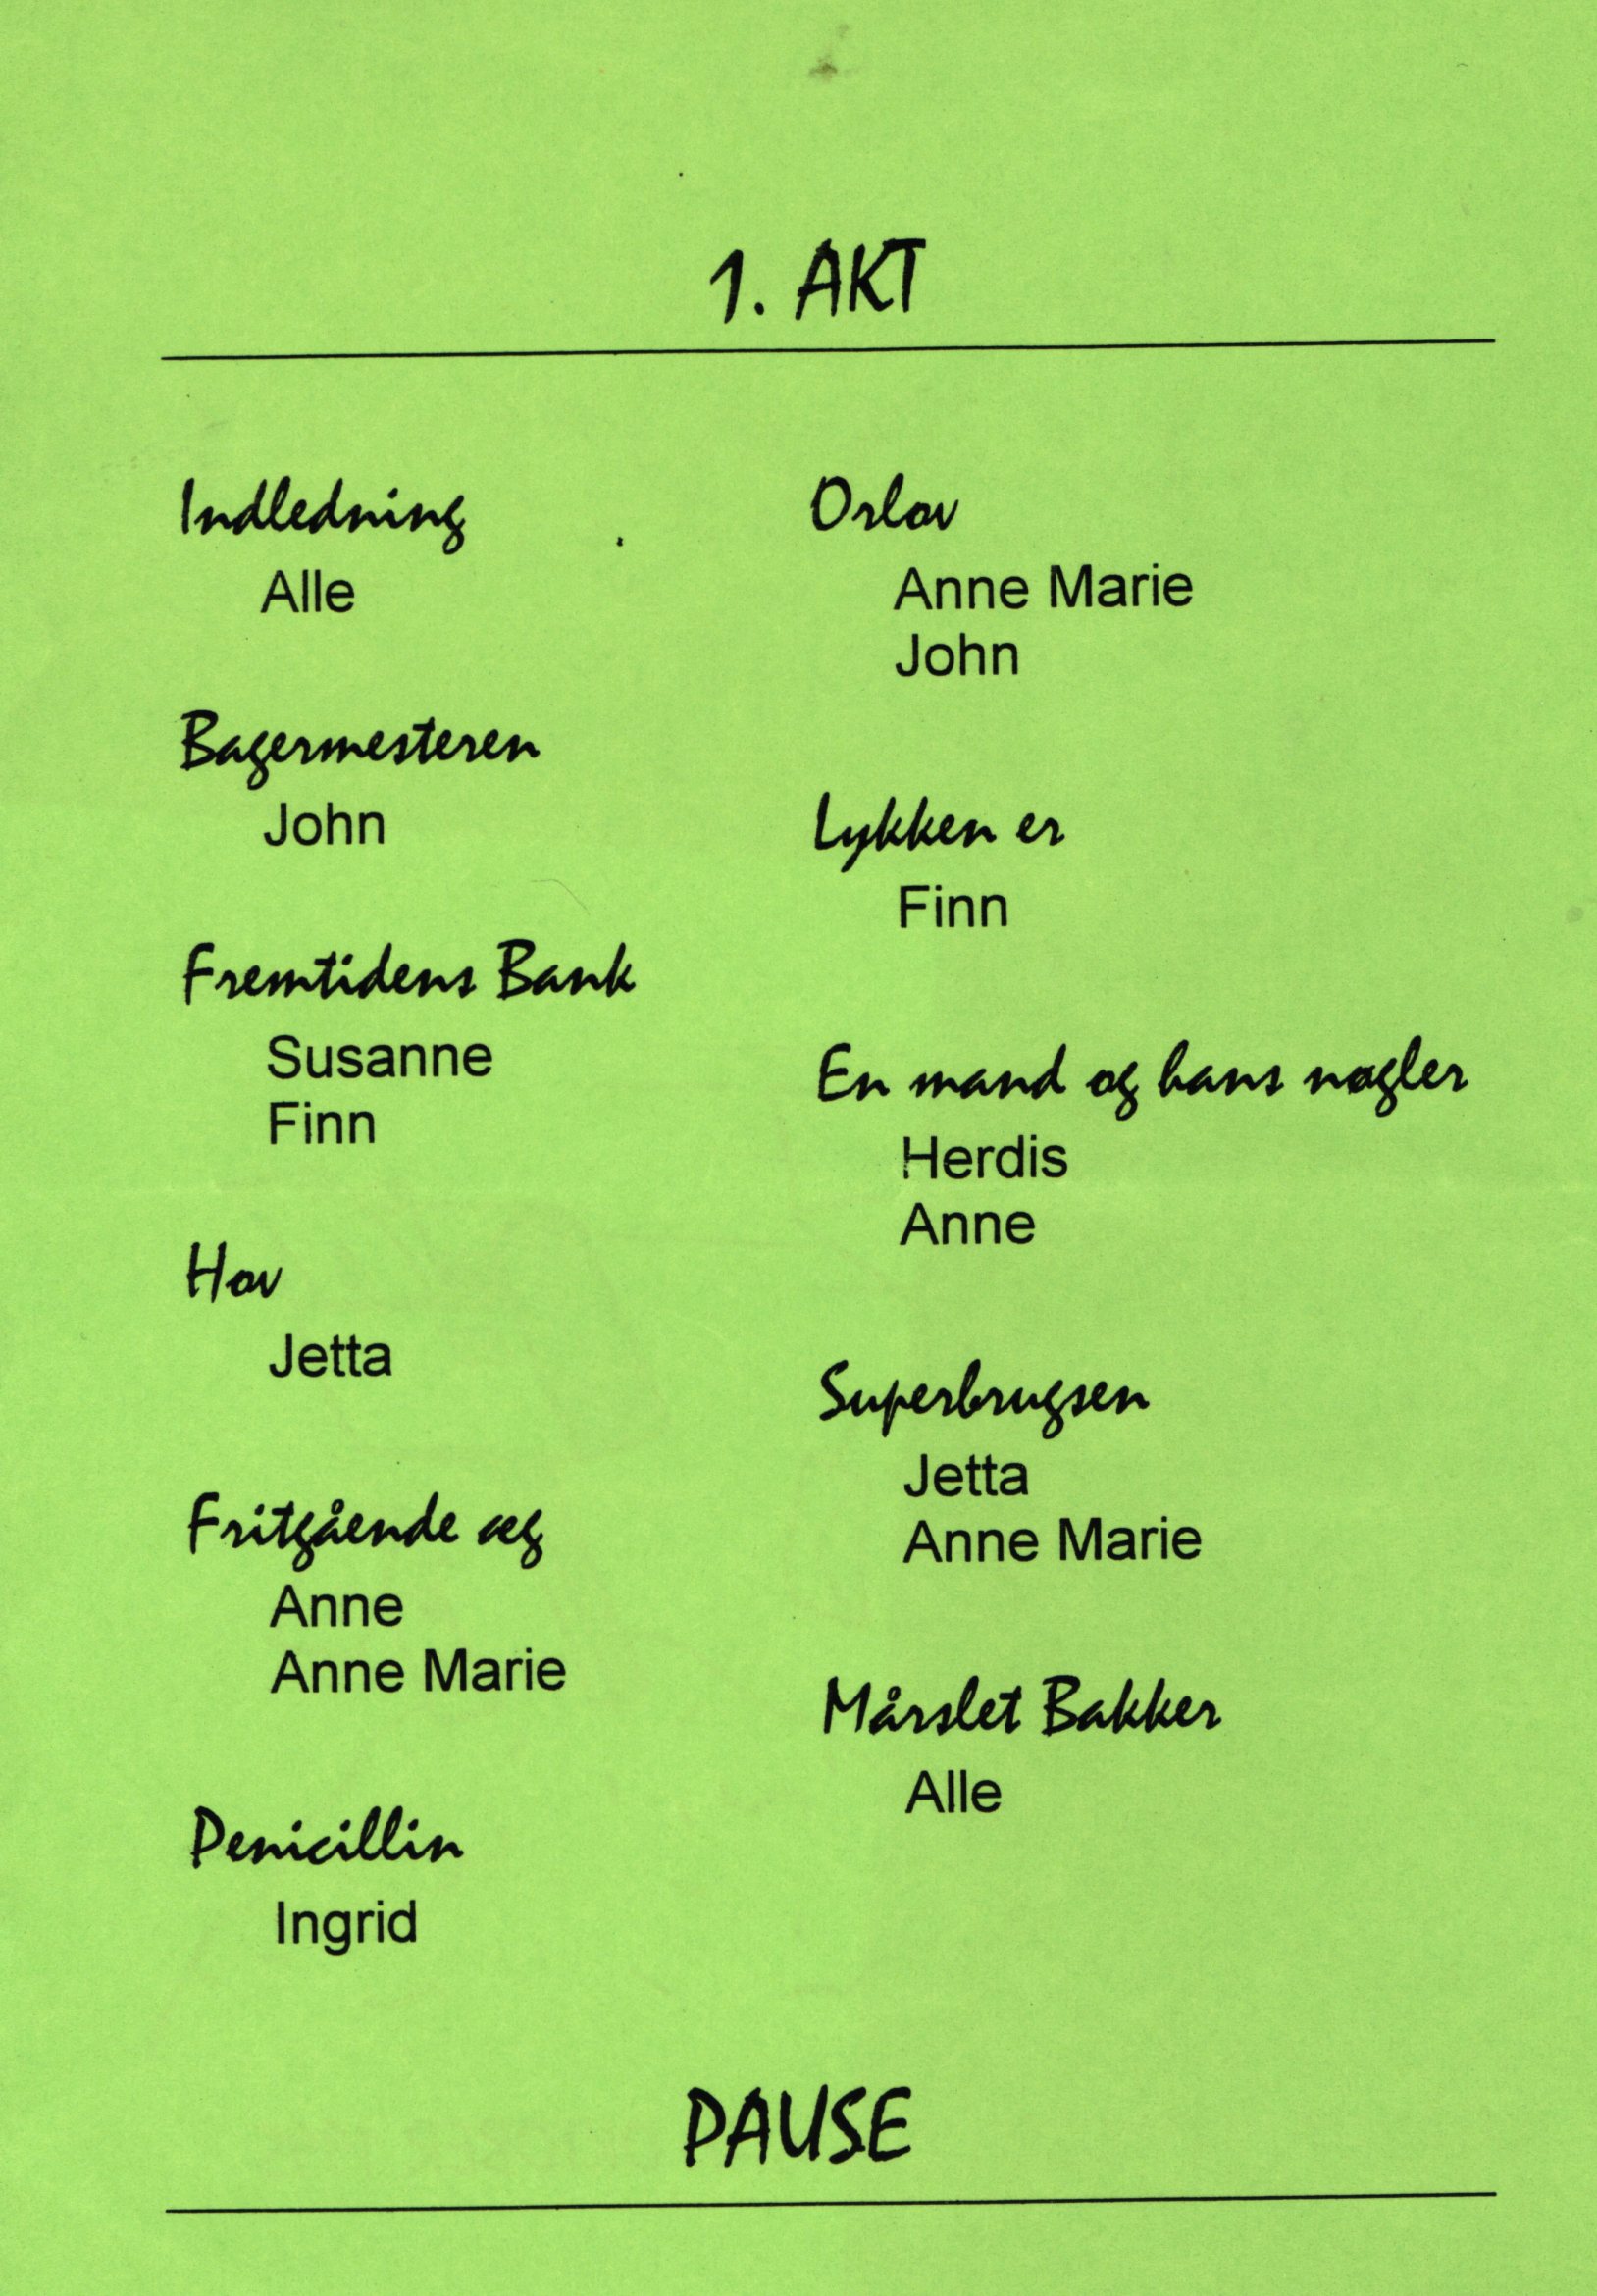 1. AKT
Indledning
Alle
Bagermesteren
John
Fremtidens Bank
Susanne
Finn
Hov
Jetta
Fritgående æg
Anne
Anne Marie
Penicillin
Ingrid
Orlov
Anne Marie
John
Lykken er
Finn
En mand og hans nøgler
Herdis
Anne
Superbrugsen
Jetta
Anne Marie
Mårslet Bakker
Alle
PAUSE